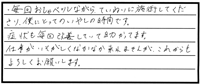 ・毎回おしゃべりしながらていねいに施術してくだ
さり、僕にとってのいやしの時間です。
症状も毎回改善していてありがたいです。
仕事がいそがしくなかなか来れませんが、これからも
よろしくお願いします。